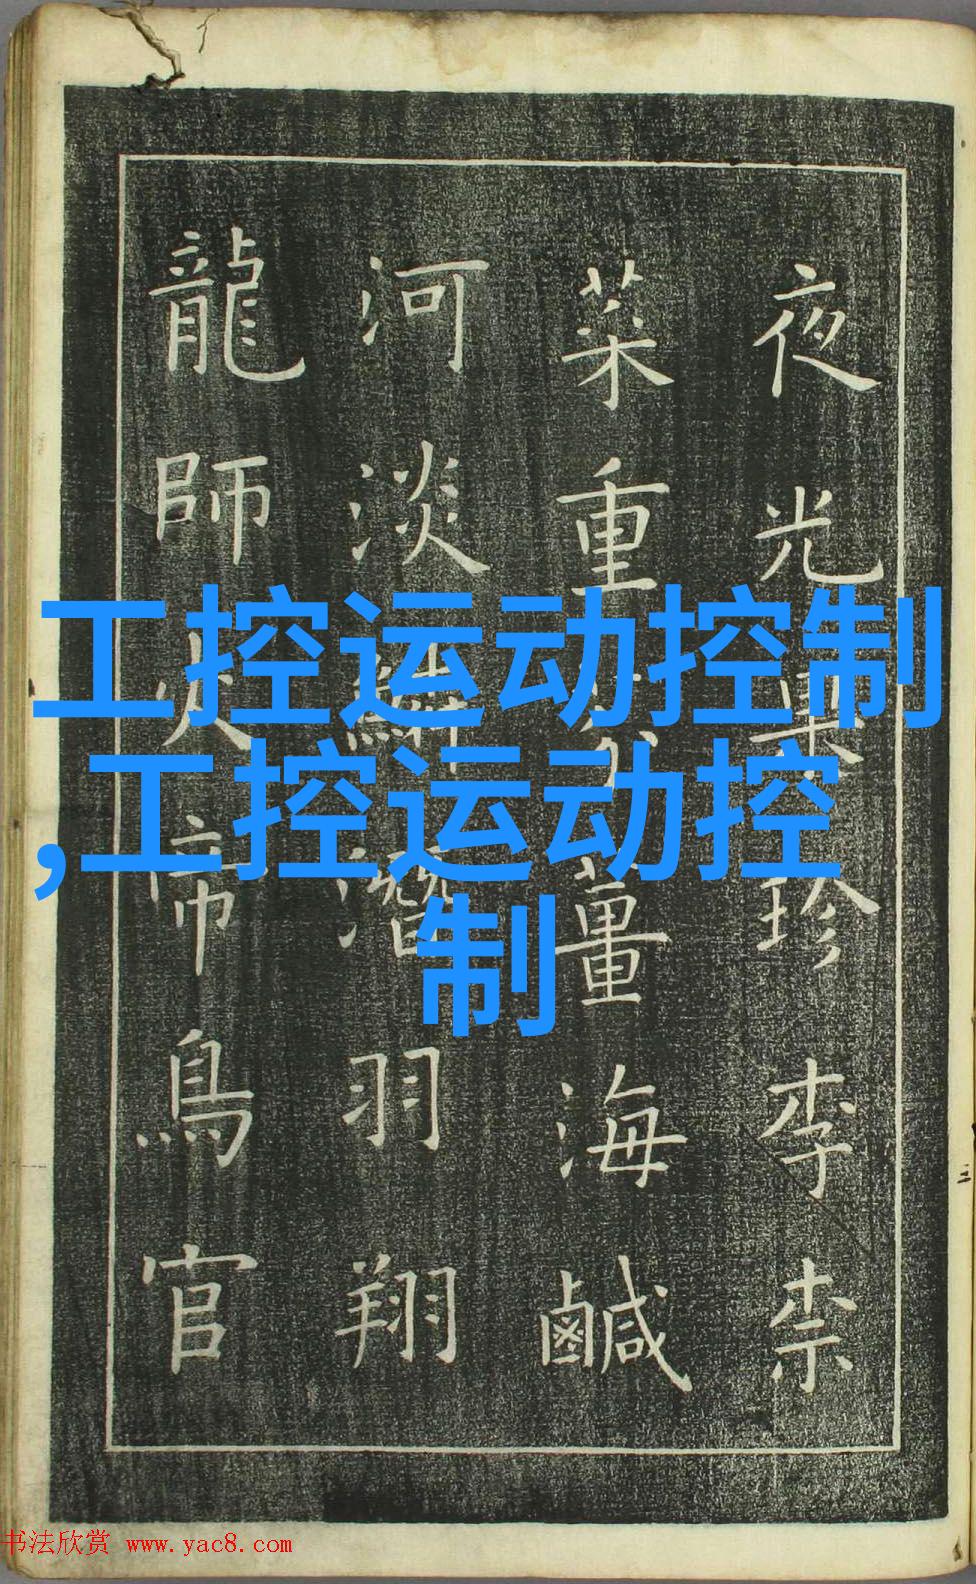 夜光果珍李柰
菜重芥薑海鹹
河淡鱗潛羽翔
龍師火帝鳥官
工控运动控制
,工控运动控
制
书法欣赏 www.yac8.com